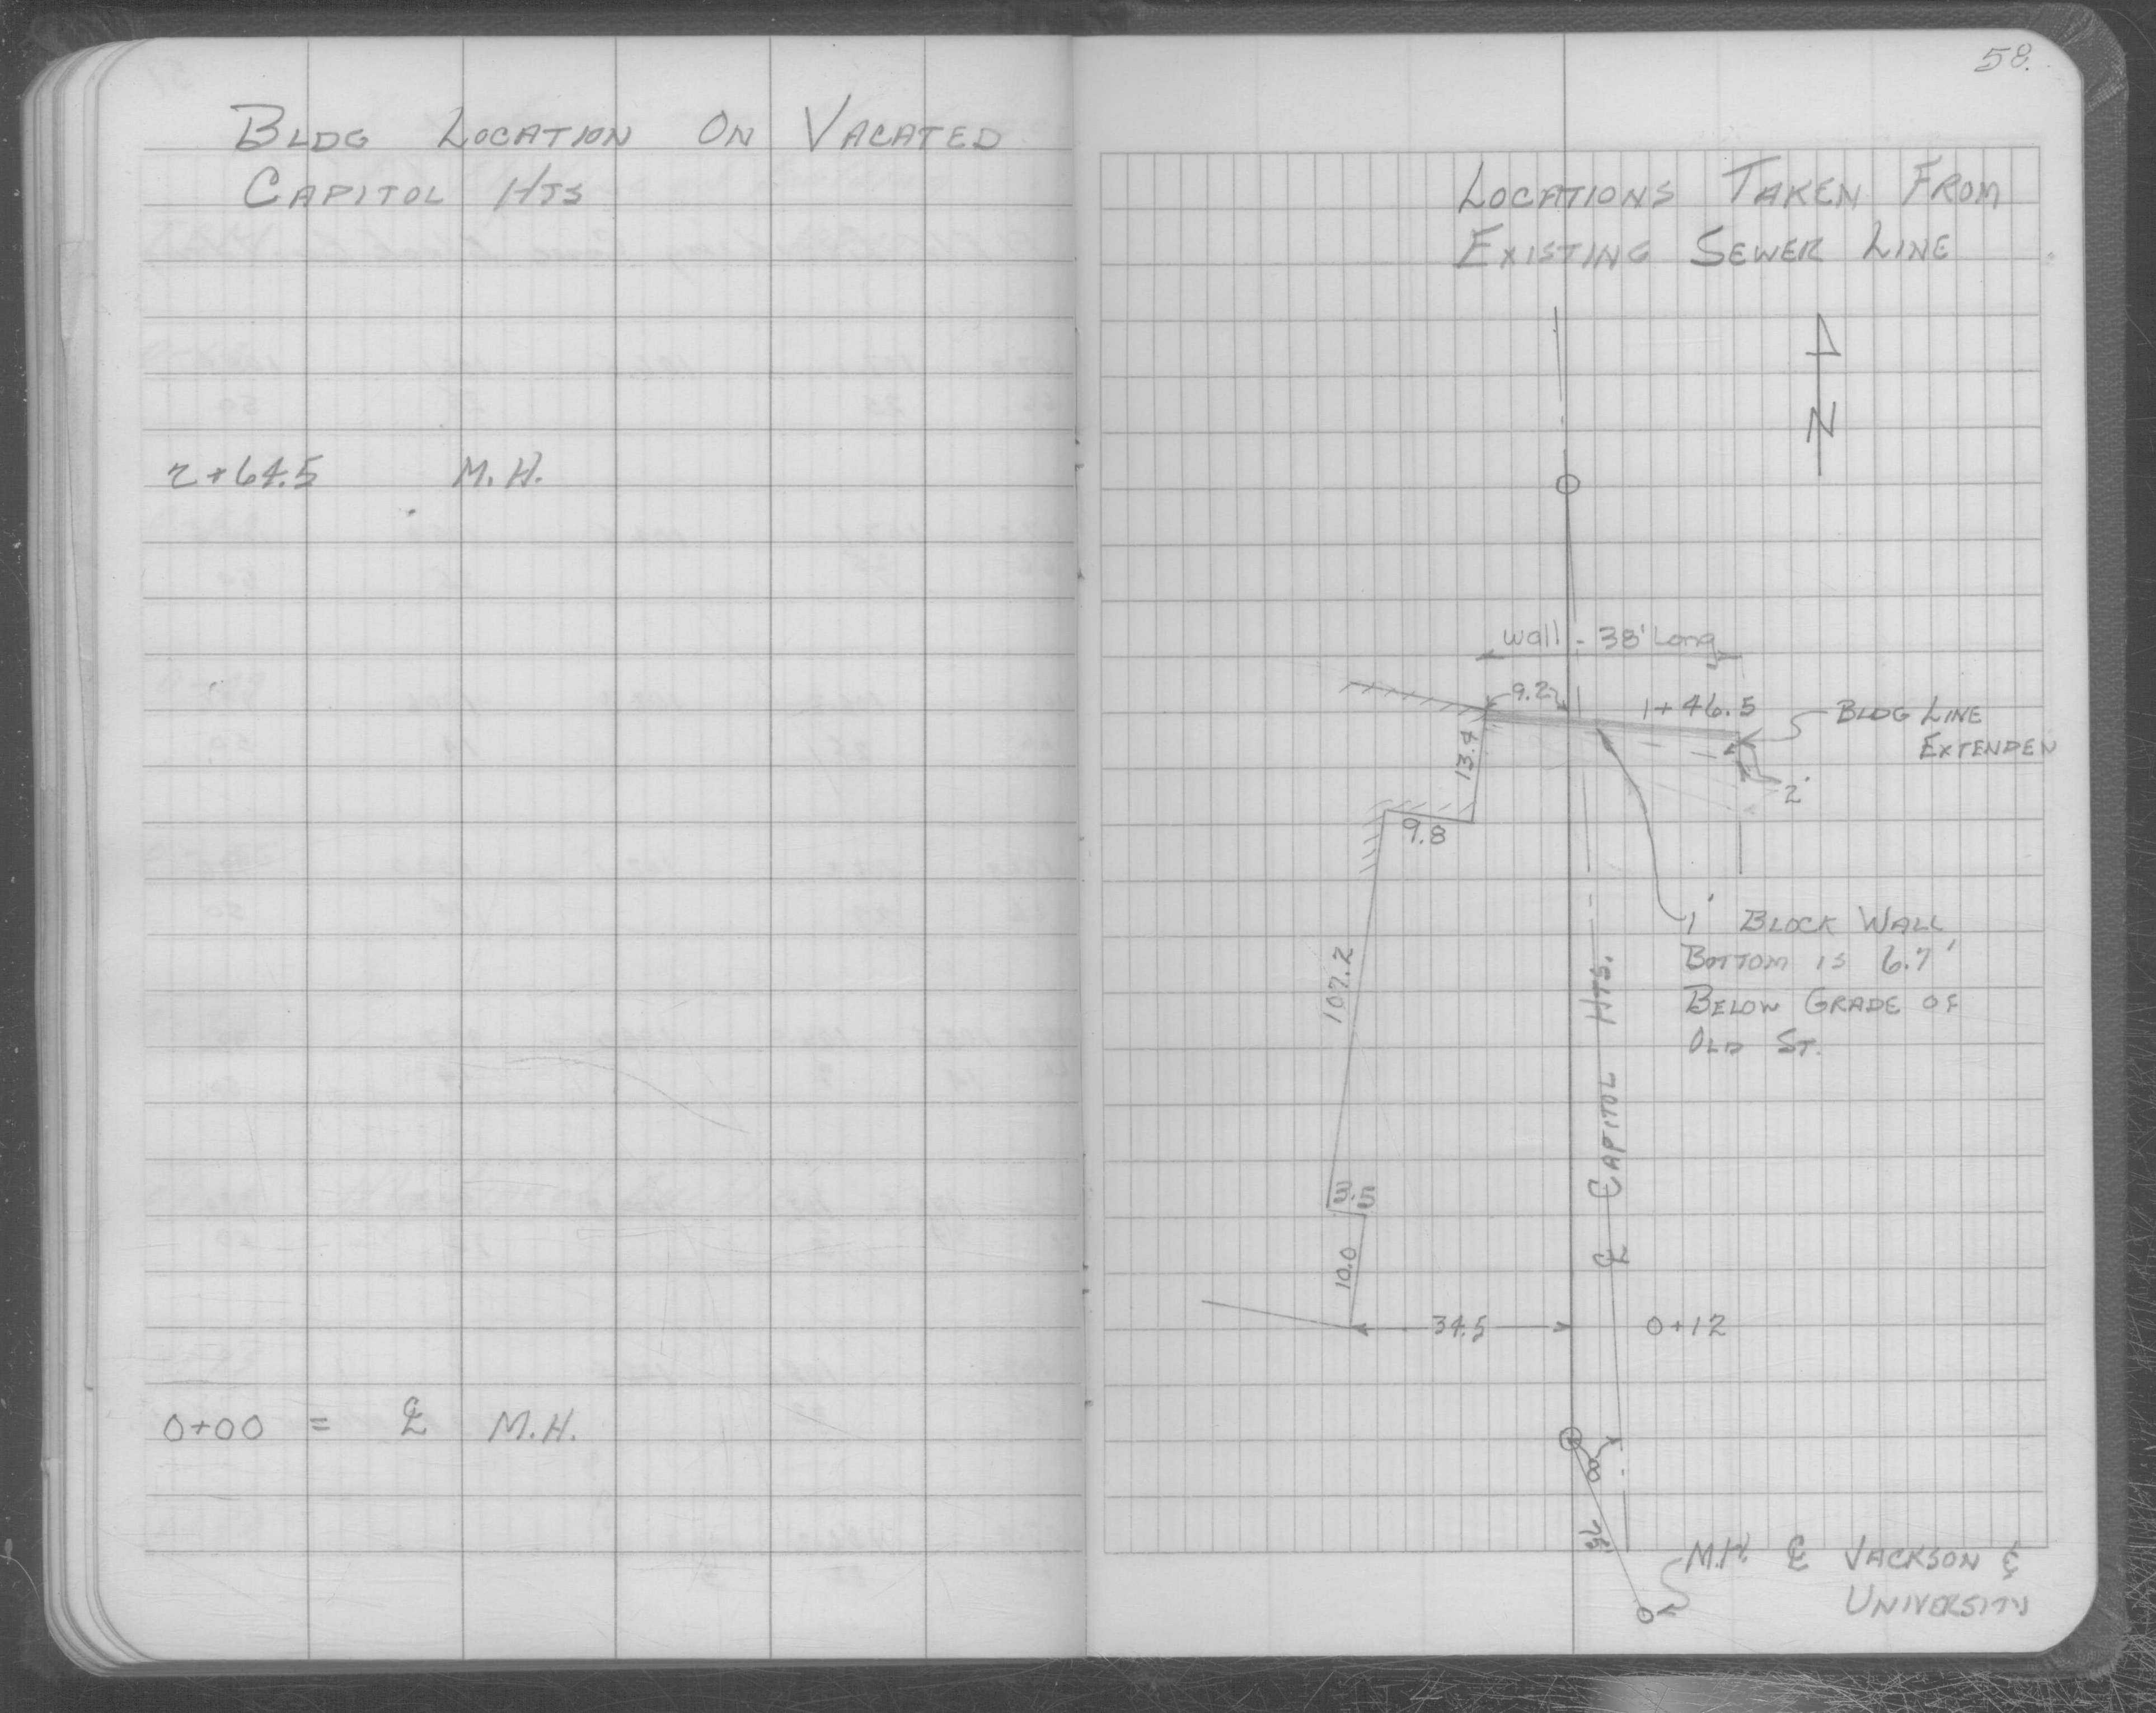 BLDG LOCATION ON VACATED
CAPITOL HTS
2+64.5 M.H.
0+00 = ℄ M.H.
58.
LOCATIONS TAKEN FROM
EXISTING SEWER LINE
N
Wall - 38' Long
9.2
1+46.5
BLDG LINE
EXTENDEN
13.4
2'
9.8
1' BLOCK WALL
BOTTOM IS 6.7'
BELOW GRADE OF
OLD ST.
107.2
℄ CAPITOL HTS.
3.5
10.0
34.5
0+12
8
M.H. ℄ JACKSON &
UNIVERSITY